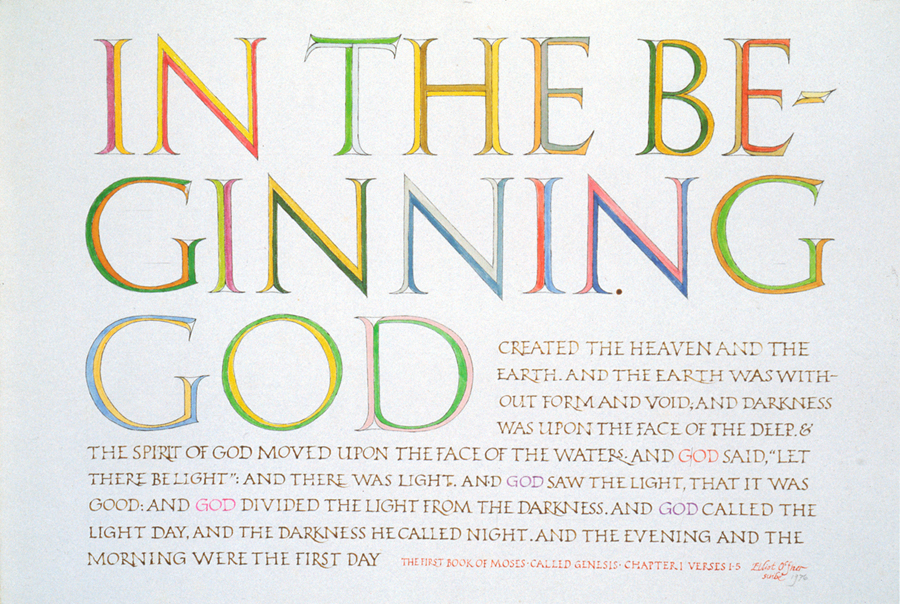 IN THE BE-
GINNING
GOD
CREATED THE HEAVEN AND THE
EARTH. AND THE EARTH WAS WITH-
OUT FORM AND VOID; AND DARKNESS
WAS UPON THE FACE OF THE DEEP. &
THE SPIRIT OF GOD MOVED UPON THE FACE OF THE WATERS. AND GOD SAID, "LET
THERE BE LIGHT": AND THERE WAS LIGHT. AND GOD SAW THE LIGHT, THAT IT WAS
GOOD: AND GOD DIVIDED THE LIGHT FROM THE DARKNESS. AND GOD CALLED THE
LIGHT DAY, AND THE DARKNESS HE CALLED NIGHT. AND THE EVENING AND THE
MORNING WERE THE FIRST DAY
THE FIRST BOOK OF MOSES · CALLED GENESIS · CHAPTER I VERSES 1-5
Eliot Offner
scribe 1976